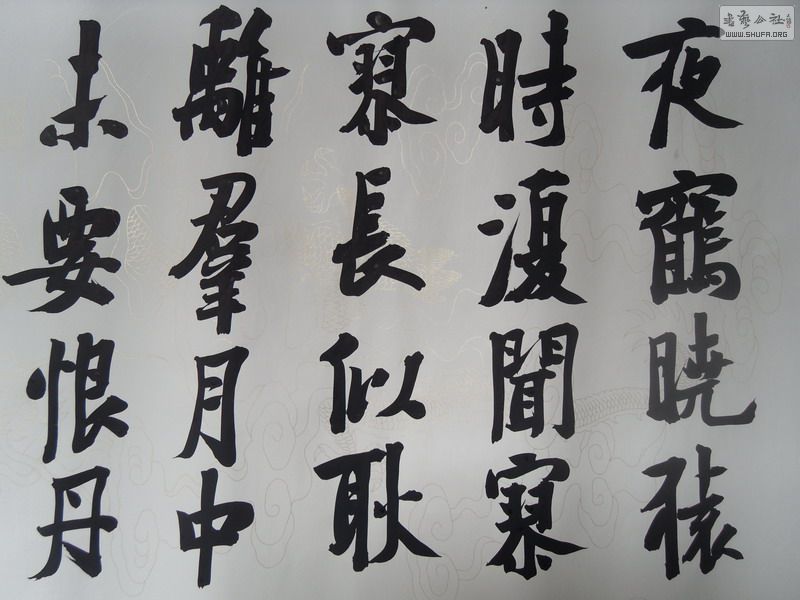 夜鶴曉猿
時復聞寥
寥長似耿
離羣月中
未要恨丹
書藝公社
WWW.SHUFA.ORG